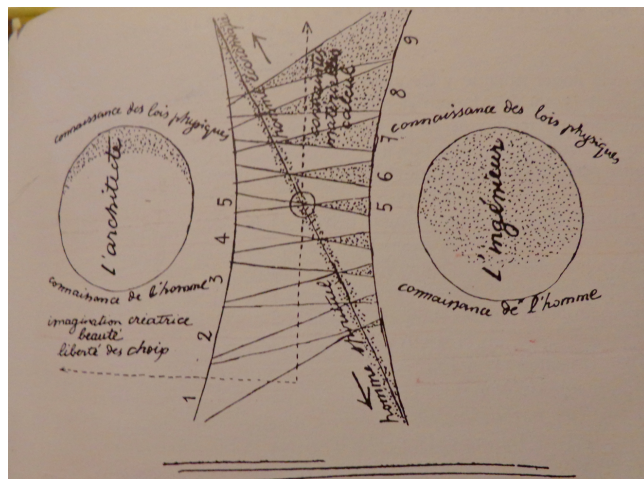 connaissance des lois physiques
L'architecte
connaissance de l'homme
imagination créatrice
beauté
liberté des choix
1
2
3
4
5
homme économique
contraintes
matérielles
calcul
homme spirituel
9
8
7
6
5
connaissance des lois physiques
L'ingénieur
connaissance de l'homme